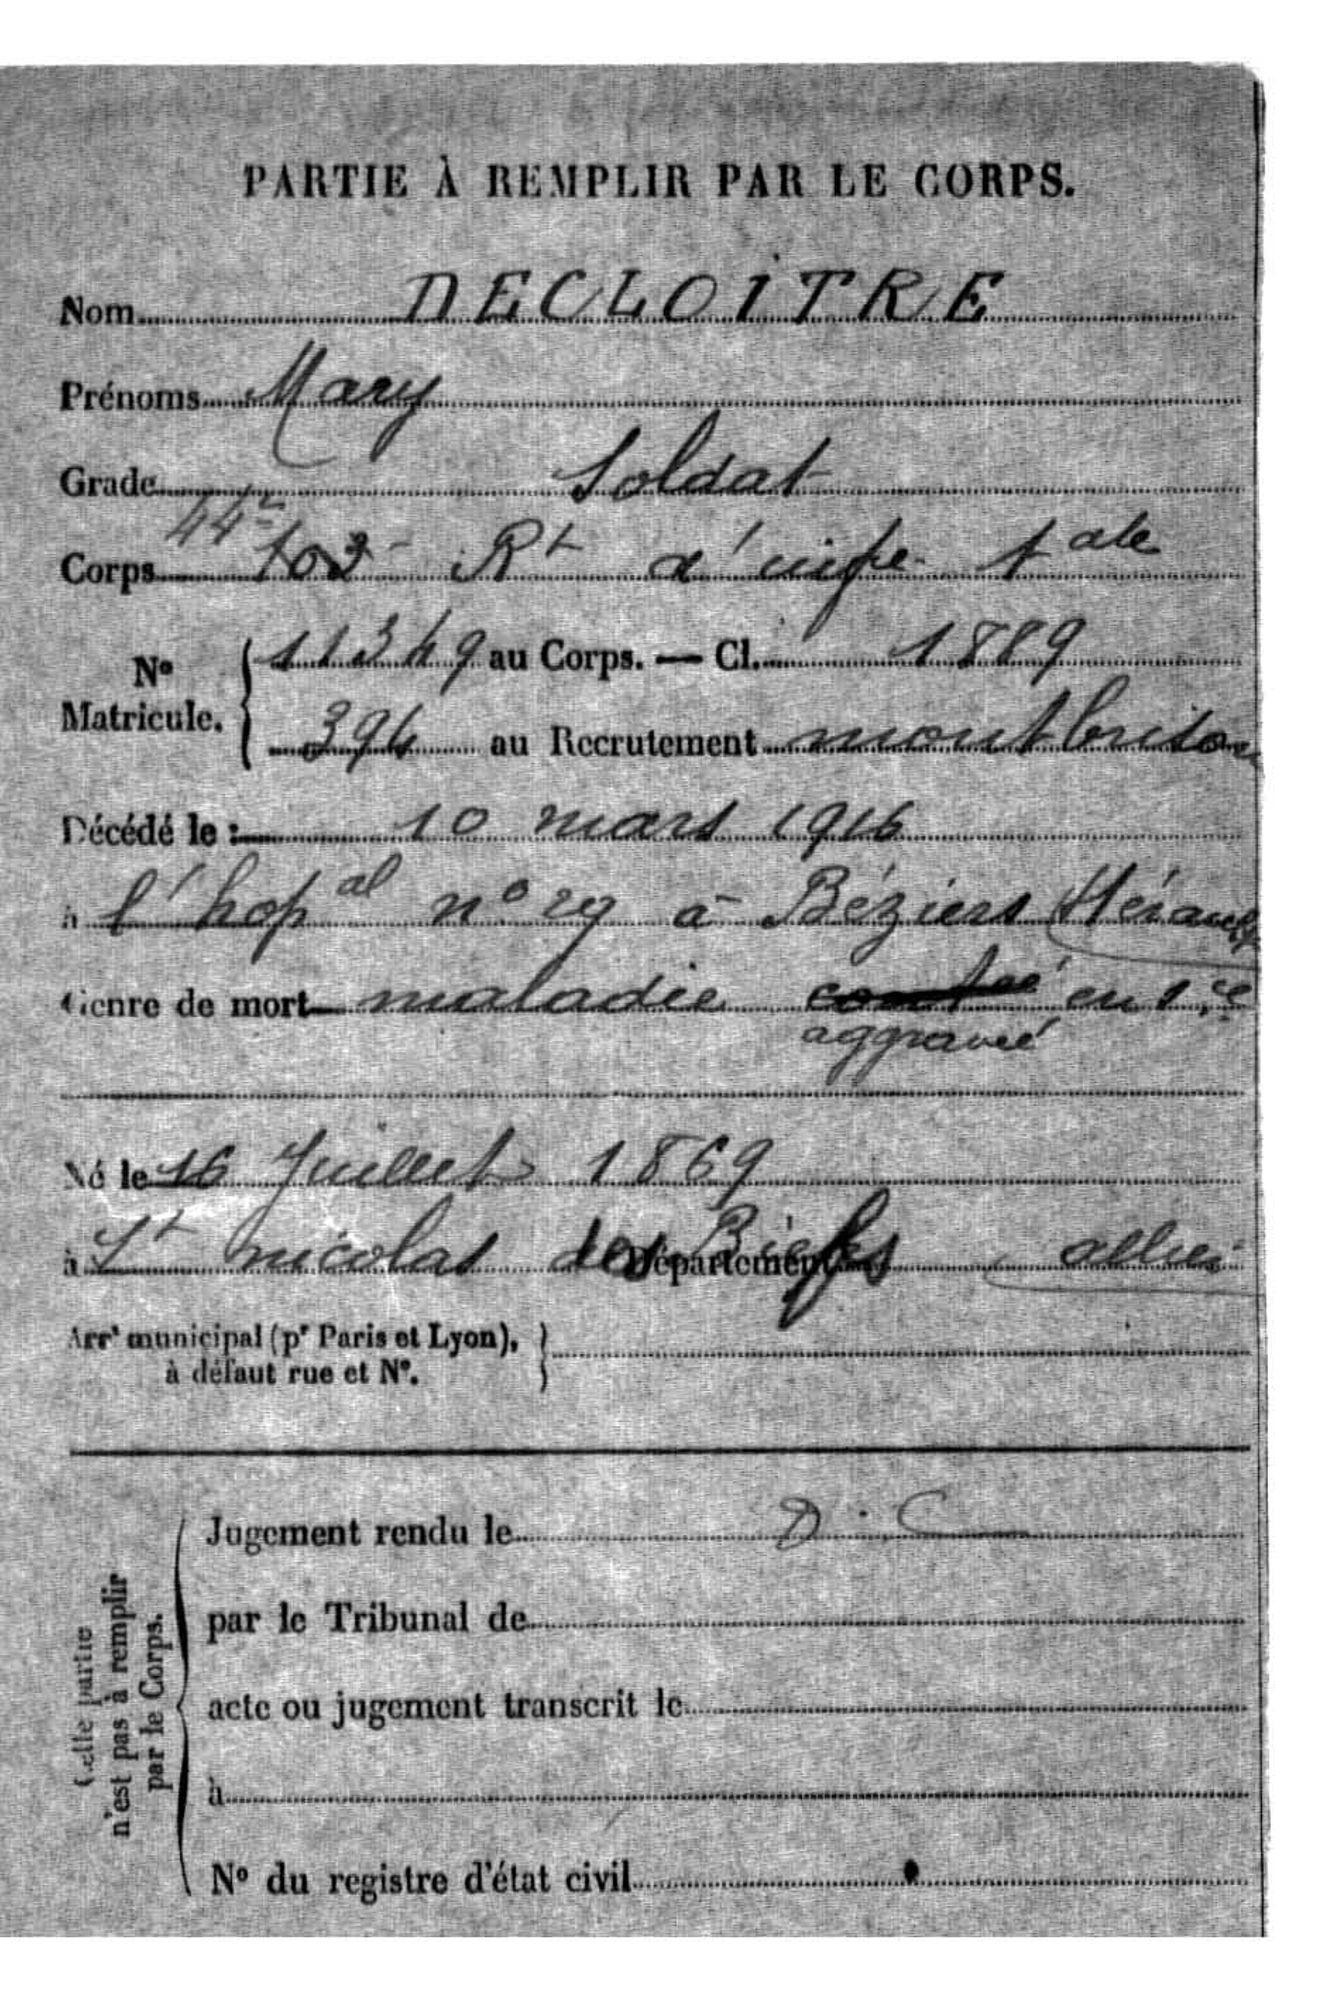 PARTIE À REMPLIR PAR LE CORPS.
Nom DECLOITRE
Prénoms Mary
Grade Soldat
44e
Corps 103e Rt d'infie tale
No Matricule. { 11349 au Corps. — Cl. 1889
394 au Recrutement montbrison
Décédé le : 10 mars 1916
à l'hopal no 29 à Béziers (Hérault)
Genre de mort maladie en sce
aggravée
Né le 16 Juillet 1869
à St nicolas des Biefs Département allier
Arrt municipal (pr Paris et Lyon), }
à défaut rue et No.
Cette partie
n'est pas à remplir
par le Corps.
Jugement rendu le D.C
par le Tribunal de
acte ou jugement transcrit le
à
No du registre d'état civil